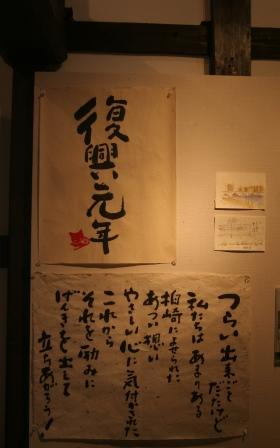 復興元年
つらい出来事
だったけど
私たちはあまりある
柏崎によせられた
あつい想い
やさしい心に気付かされた
これから
それを励みに
げんきを出して
立ちあがろう!